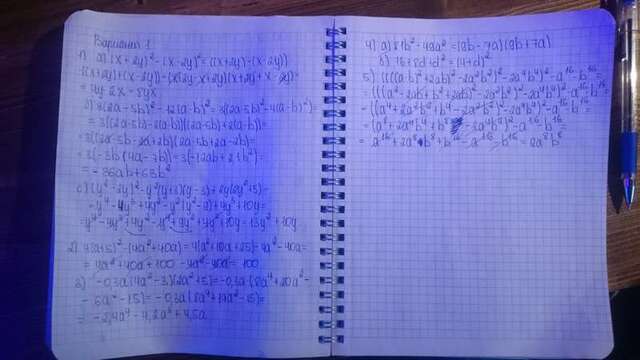 Вариант 1
1) а) (x+2y)² - (x-2y)² = ((x+2y)-(x-2y))
((x+2y)+(x-2y)) = (x+2y-x+2y)(x+2y+x-2y)=
= 4y · 2x = 8yx
3(2a-5b)² - 12(a-b)² = 3(2a-5b)² - 4(a-b)²)
= 3(2a-5b-2(a-b))(2a-5b+2(a-b))=
= 3(2a-5b-2a+2b)(2a-5b+2a-2b)=
= 3(-3b(4a-7b)) = 3(-12ab+21b²)=
= -36ab+63b²
c) (y²-2y)² - y²(y+3)(y-3)+2y(2y²+5)=
2) 4(a+5)² - (4a²+40a) = 4(a²+10a+25) - 4a² - 40a=
= 4a²+40a+100 - 4a²-40a = 100
3) -0,3a(4a²-3)(2a²+5) = -0,3a(8a⁴+20a²-
- 6a²-15) = -0,3a(8a⁴+14a²-15)=
= -2,4a⁵ - 4,2a³ + 4,5a
4) а) 81b² - 49a² = (9b-7a)(9b+7a)
б) 16+8d+d² = (4+d)²
5) ((((a-b)²+2ab)²-2a²b²)²-2a⁴b⁴)²-a¹⁶-b¹⁶=
= (((a²-2ab+b²+2ab)²-2a²b²)²-2a⁴b⁴)²-a¹⁶-b¹⁶=
= ((a⁴+2a²b²+b⁴-2a²b²)²-2a⁴b⁴)²-a¹⁶-b¹⁶=
= (a⁸+2a⁴b⁴+b⁸-2a⁴b⁴)²-a¹⁶-b¹⁶=
= a¹⁶+2a⁸b⁸+b¹⁶-a¹⁶-b¹⁶=2a⁸b⁸